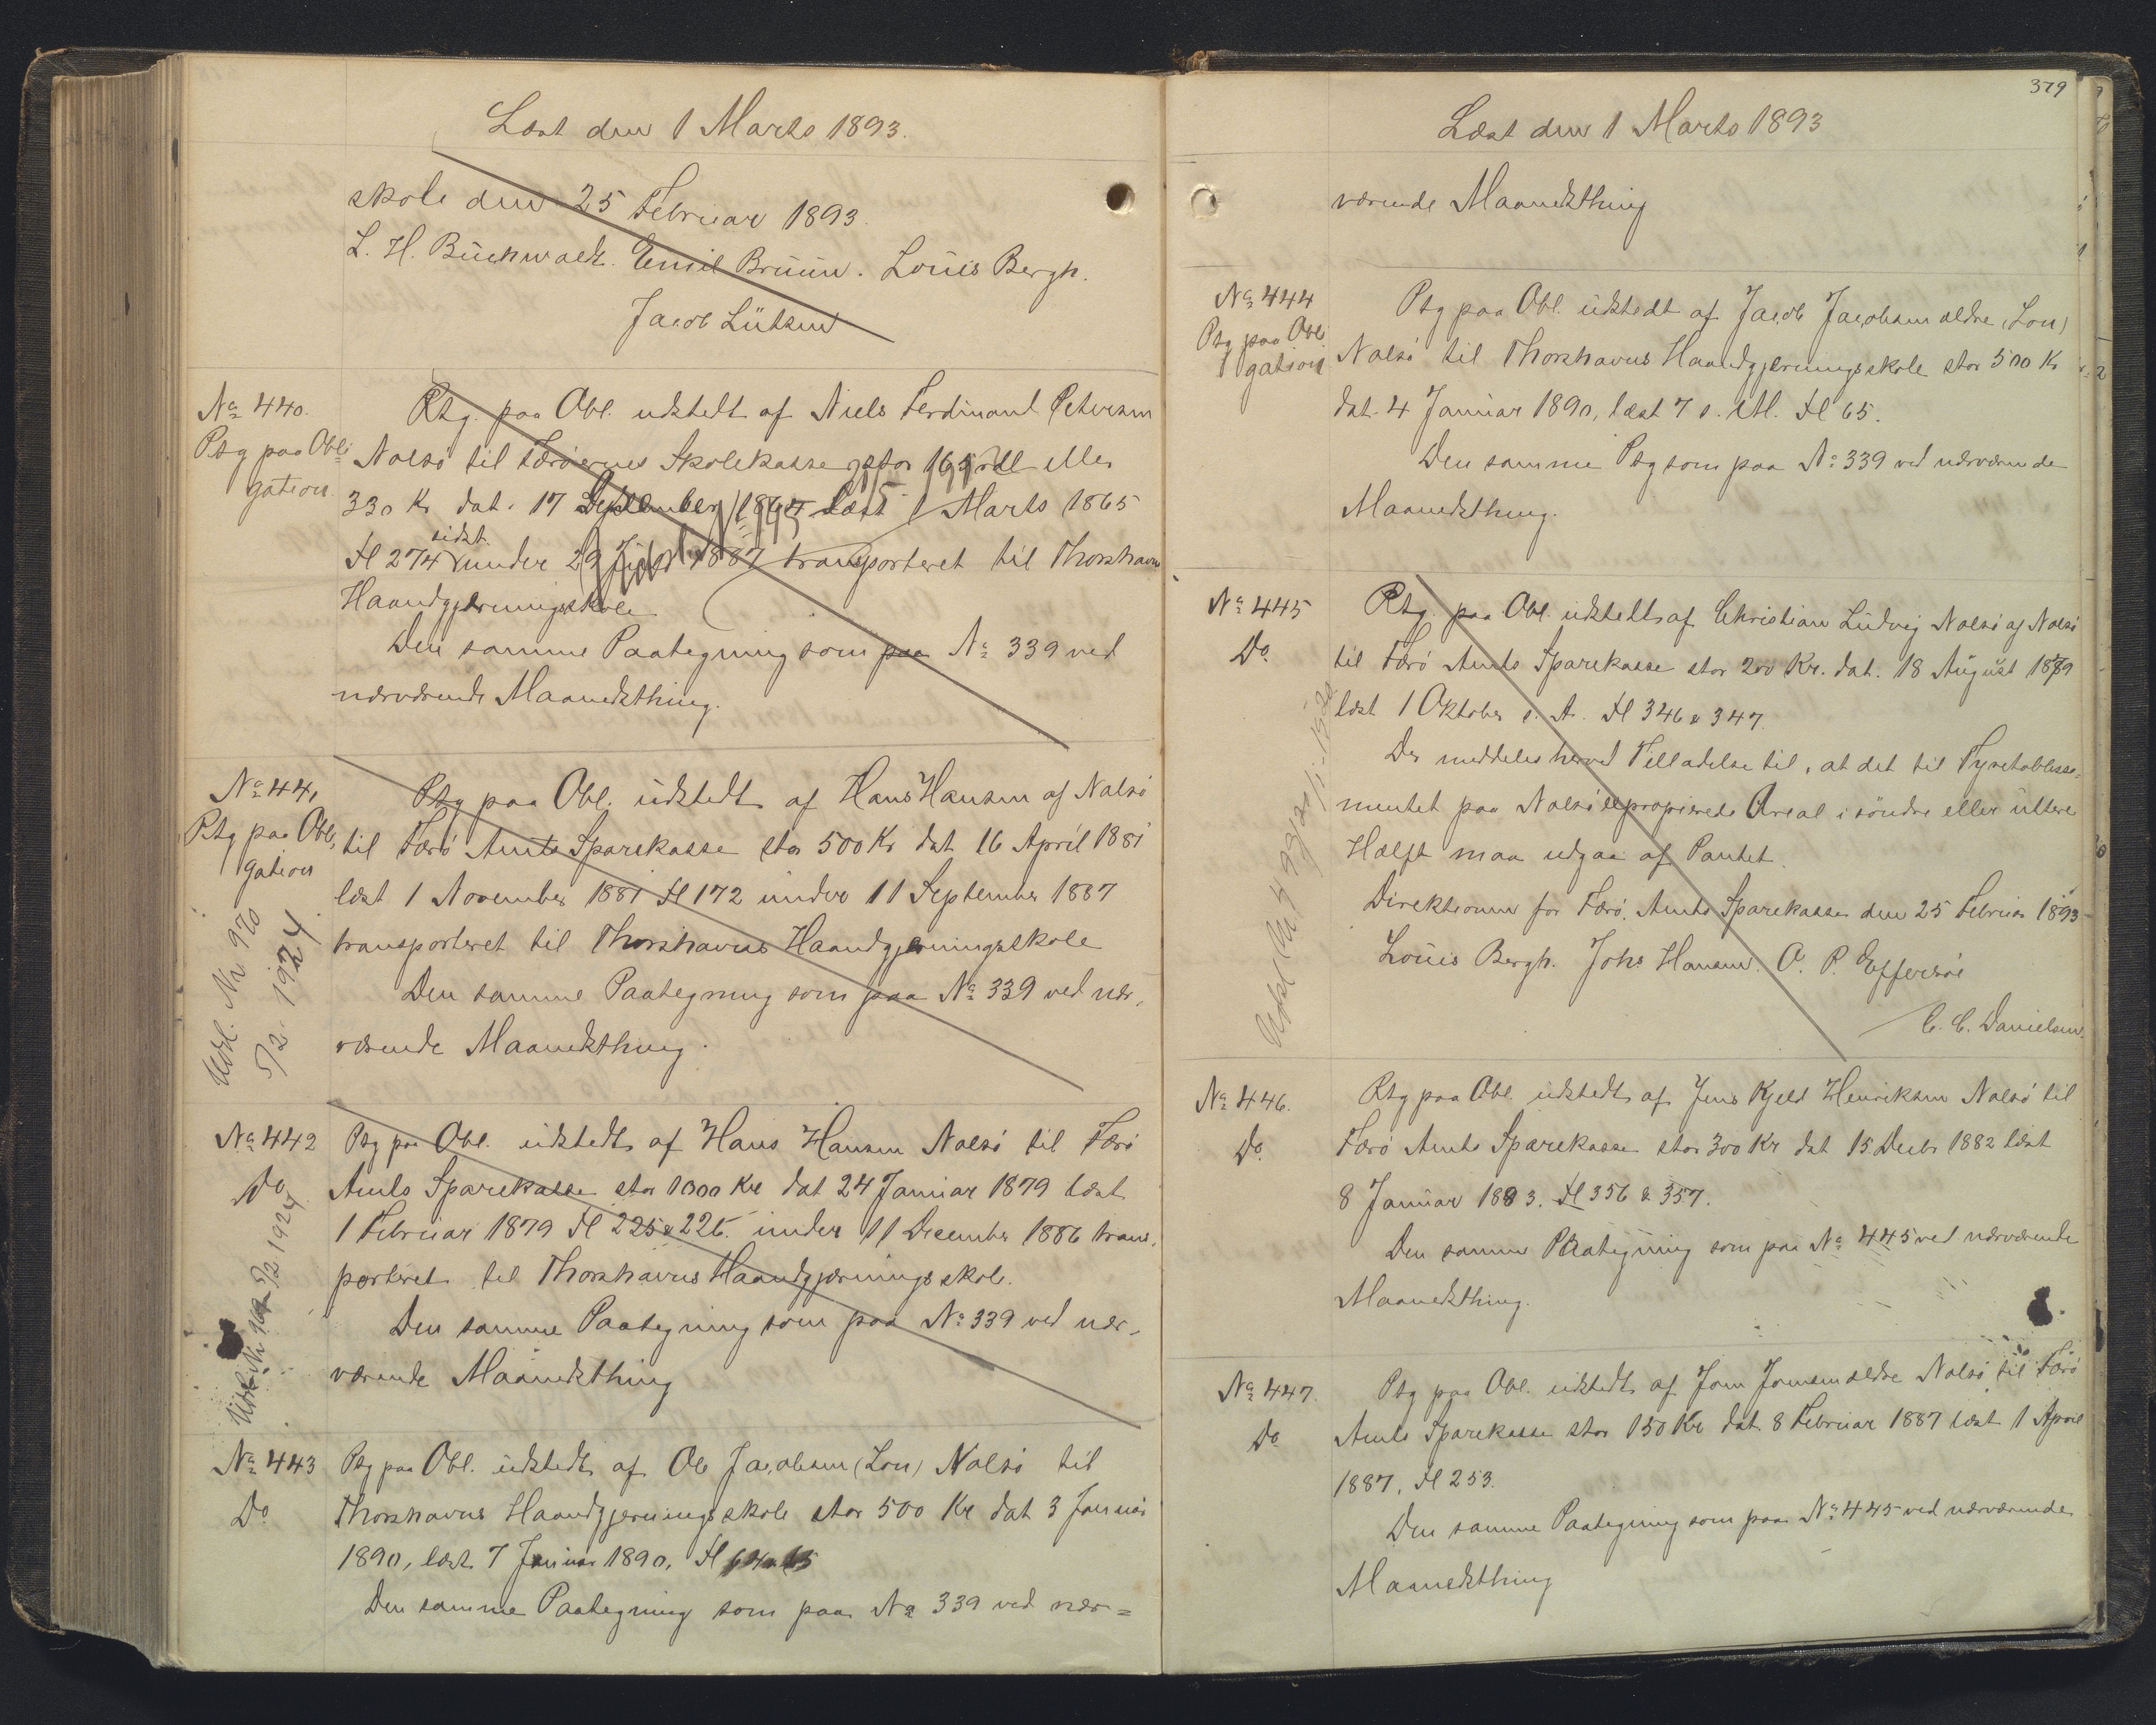 Læst den 1 Marts 1893.
skole den 25 Februar 1893.
L. H. Buchwaldt. Emil Bruun. Louis Bergh.
Jacob Lützen
No 440.
Ptg paa Obli
gation
Ptg. paa Obl. udstedt af Niels Ferdinant Petersen
Nolsö til Færöernes Skolekasse stor 165 rdl eller
330 Kr dat. 17 September 1864 læst 1 Marts 1865
Fl 274 sidst under 29 1887 transporteret til Thorshavns
Haandgjerningsskole
Den samme Paategning som paa No 339 ved
nærværende Maanedsthing.
No 441
Ptg paa Obli
gation
Udsl. Nr 970
5/2 1924
Ptg paa Obl. udstedt af Hans Hansen af Nolsö
til Færö Amts Sparekasse stor 500 Kr dat 16 April 1881
læst 1 November 1881 Fl 172 under 11 September 1887
transporteret til Thorshavns Haandgjerningsskole
Den samme Paategning som paa No 339 ved nær-
værende Maanedsthing.
No 442
Do
Udsl. Nr 5/2 1924
Ptg paa Obl. udstedt af Hans Hansen Nolsö til Færö
Amts Sparekasse stor 1000 Kr dat 24 Januar 1879 læst
1 Februar 1879 Fl 225 & 226. under 11 December 1886 trans-
porteret til Thorshavns Haandgjerningsskole.
Den samme Paategning som paa No 339 ved nær-
værende Maanedsthing
No 443
Do
Ptg paa Obl. udstedt af Ole Jacobsen (Lon) Nolsö til
Thorshavns Haandgjerningsskole stor 500 Kr dat 3 Januar
1890, læst 7 Januar 1890, Fl 64 & 65
Den samme Paategning som paa No 339 ved nær=
379
Læst den 1 Marts 1893
værende Maanedsthing
No 444
Ptg paa Obli
gation
Ptg paa Obl. udstedt af Jacob Jacobsen ældre (Lon)
Nolsö til Thorshavns Haandgjerningsskole stor 500 Kr
dat. 4 Januar 1890, læst 7 s. M. Fl 65.
Den samme Ptg som paa No 339 ved nærværende
Maanedsthing.
No 445
Do
Ptg. paa Obl. udstedt af Christian Ludvig Nolsö af Nolsö
til Færö Amts Sparekasse stor 200 Kr. dat. 18 August 1879
læst 1 Oktober s. A. Fl 346 & 347.
Der meddeles herved Tilladelse til, at det til Fyretablisse-
mentet paa Nolsö expropierede Areal i söndre eller uttere
Hælft maa udgaa af Pantet.
Direktionen for Færö Amts Sparekasse den 25 Februar 1893
Louis Bergh. Johs Hansen. O. P. Effersöe
C. C. Danielsen.
No 446.
Do
Ptg paa Obl. udstedt af Jens Kjeld Henriksen Nolsö til
Færö Amts Sparekasse stor 300 Kr dat 15 Decbr 1882 læst
8 Januar 1883. Fl 356 & 357.
Den samme Paategning som paa No 445 ved nærværende
Maanedsthing.
No 447.
Do
Ptg paa Obl. udstedt af Joen Joensen ældre Nolsö til Færö
Amts Sparekasse stor 150 Kr dat. 8 Februar 1887 læst 1 April
1887, Fl 253.
Den samme Paategning som paa No 445 ved nærværende
Maanedsthing